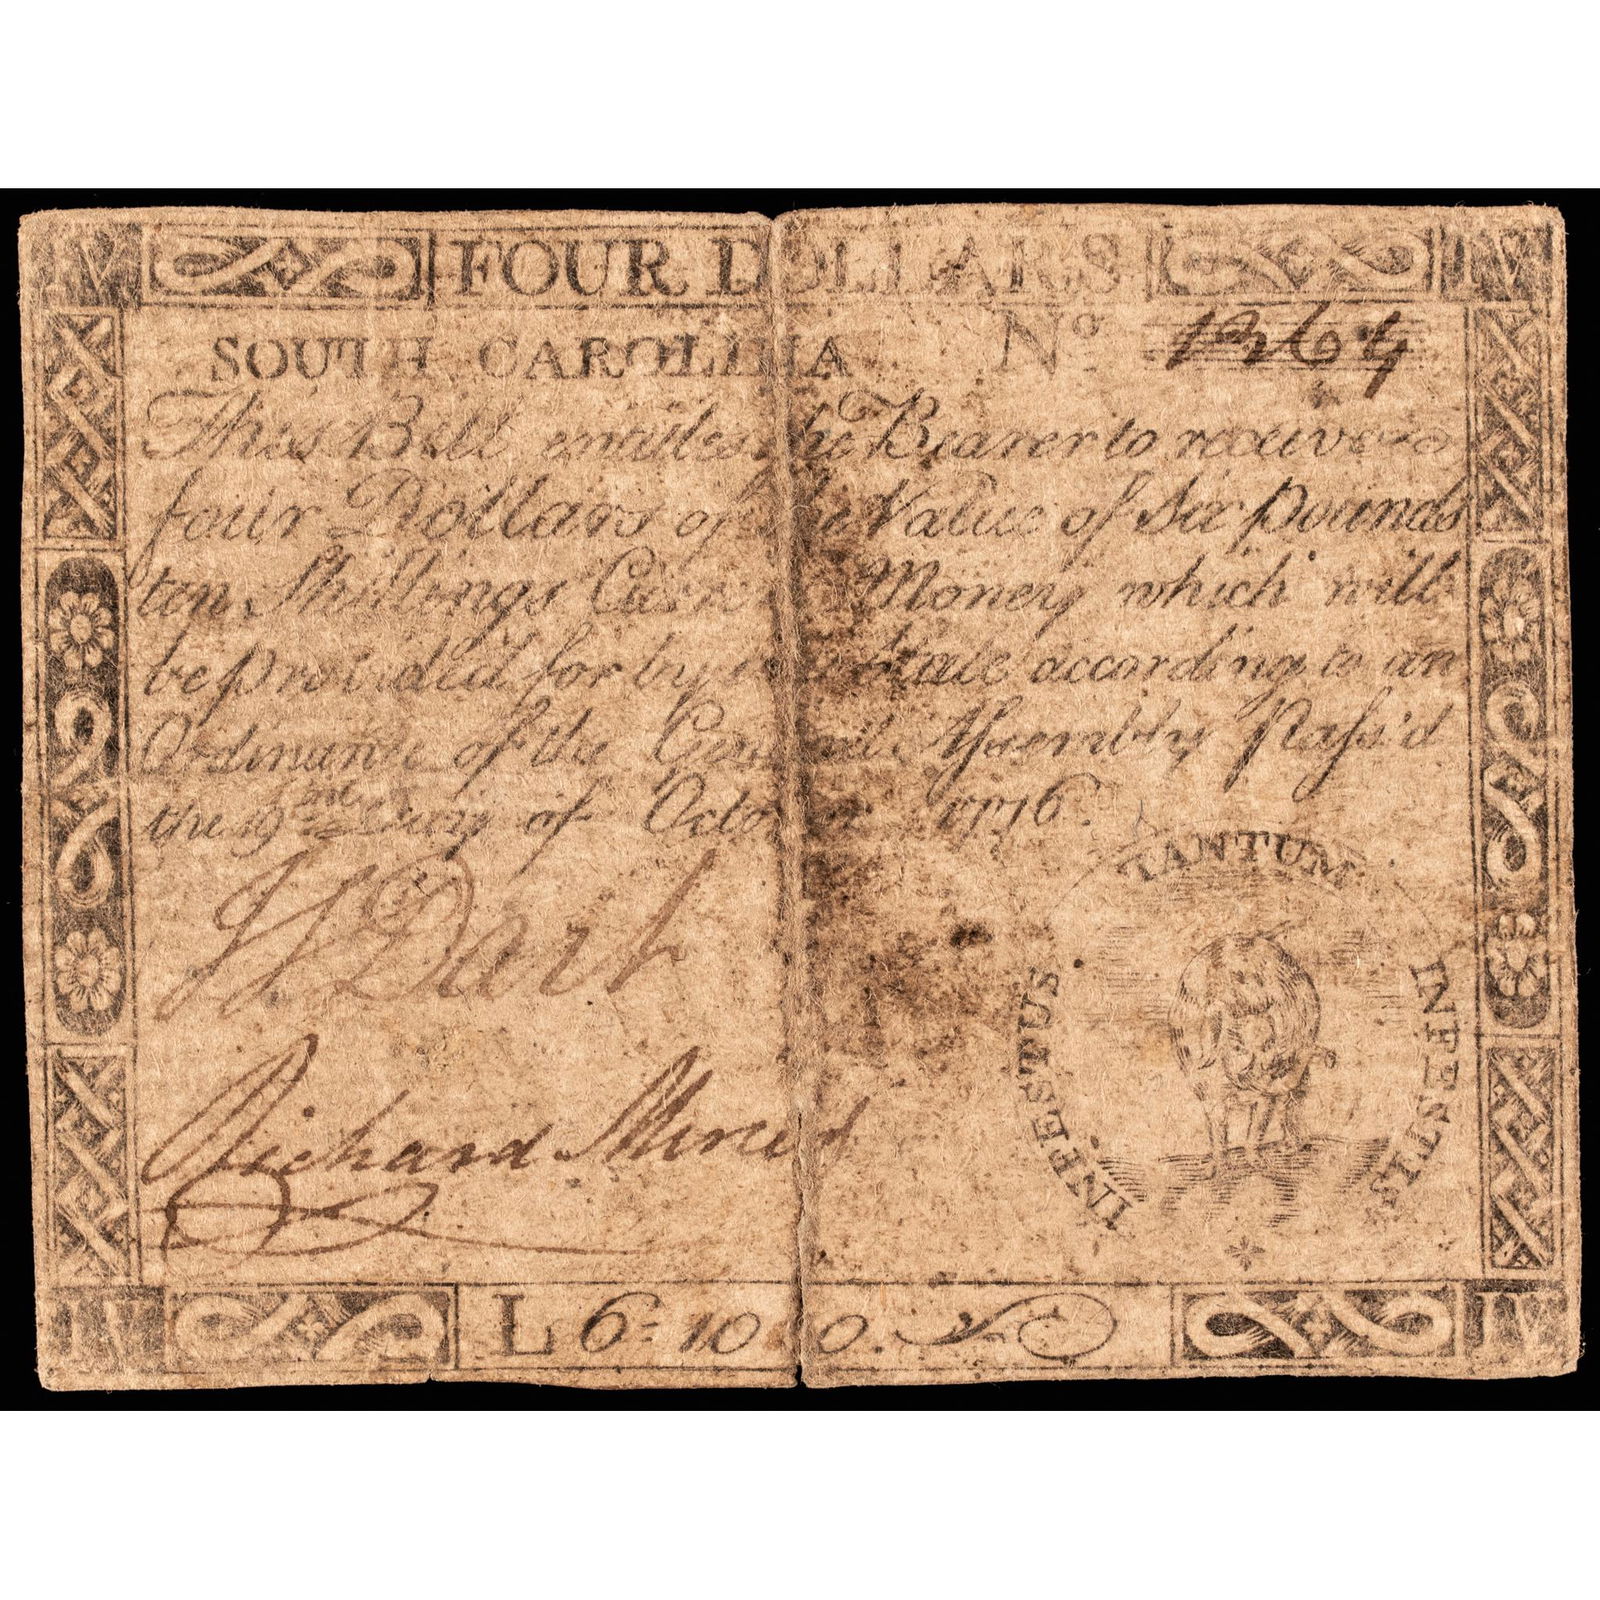 IV FOUR DOLLARS IV
SOUTH CAROLINA No. 1364
This Bill entitles the Bearer to receive
four Dollars of the Value of Six pounds
ten Shillings Curr Money which will
be provided for by the State according to an
Ordinance of the General Assembly Pass'd
the 19th day of October 1776.
Dart
Richard
INFESTUS TANTUM INFESTIS
IV L 6: 10 0. IV